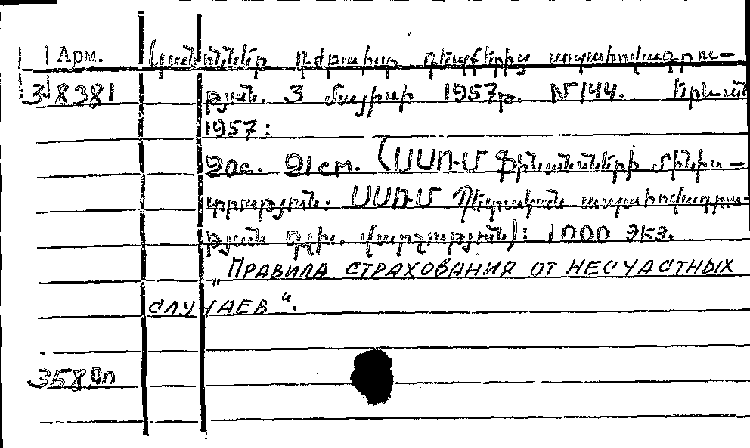 Арм. Կանոններ դժբախտ դեպքերից ապահովագրու-
3-8381 թյան. 3 մայիսի 1957թ. №144. Երևան
1957:
20с. 21см. (ՍՍՌՄ Ֆինանսների մինիս-
տրություն. ՍՍՌՄ Պետական ապահովագրու-
թյան գլխ. վարչություն): 1000 экз.
„ПРАВИЛА СТРАХОВАНИЯ ОТ НЕСЧАСТНЫХ
СЛУЧАЕВ“.
358